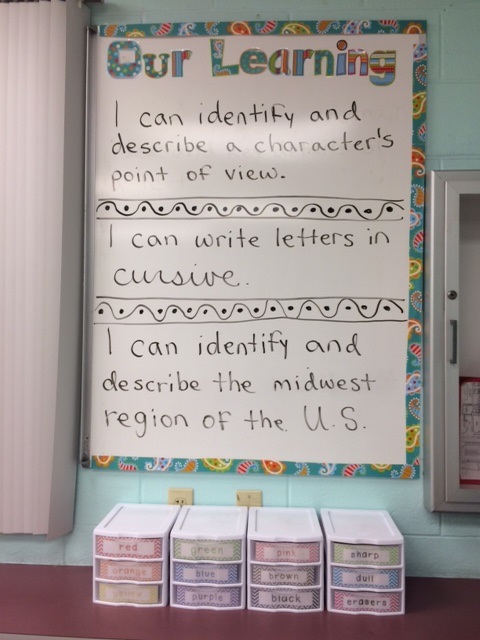 Our Learning
I can identify and
describe a character's
point of view.
I can write letters in
cursive.
I can identify and
describe the midwest
region of the U.S.
red
orange
green
blue
purple
pink
brown
black
sharp
dull
erasers